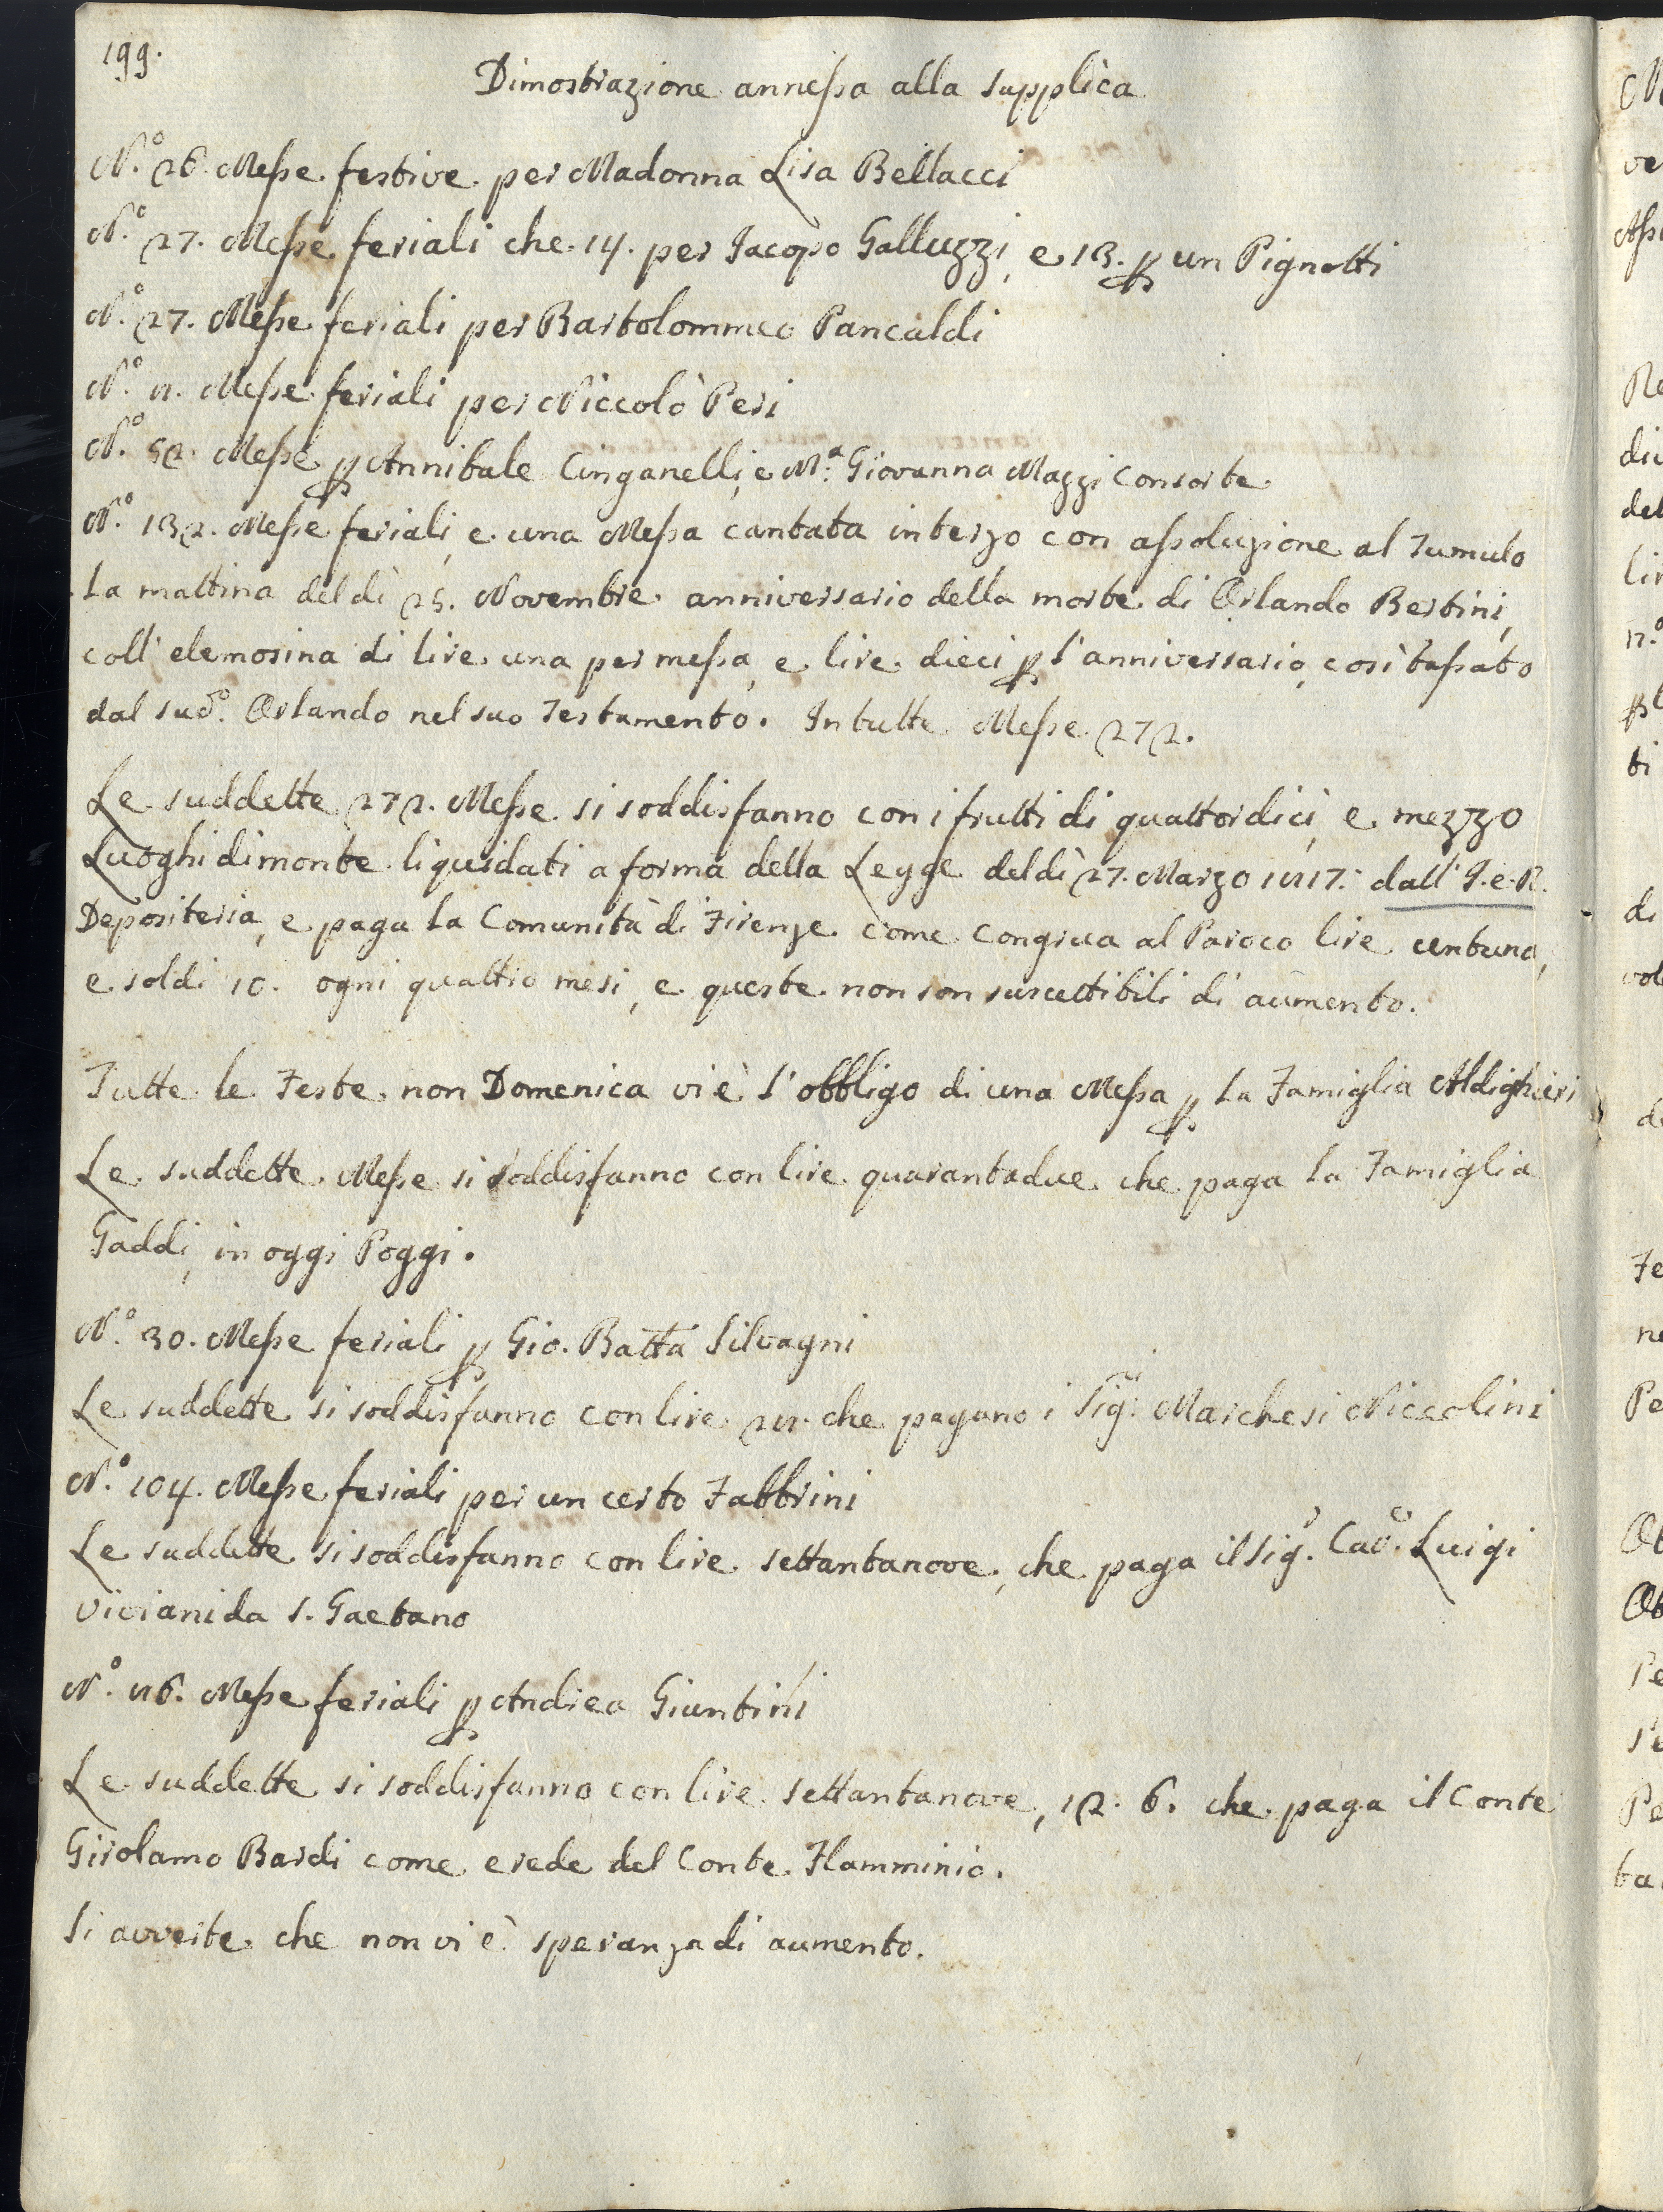 199.
Dimostrazione annessa alla supplica
N.° 26. Messe festive per Madonna Lisa Bellacci
N.° 27. Messe feriali che 14. per Iacopo Galluzzi, e 13. p un Pignotti
N.° 27. Messe feriali per Bartolommeo Pancaldi
N.° 8. Messe feriali per Niccolò Peri
N.° 52. Messe p Annibale Cinganelli, e M.ª Giovanna Mazzi Consorte
N.° 132. Messe feriali, e una Messa cantata in terzo con assoluzione al Tumulo
la mattina del dì 25. Novembre anniversario della morte di Orlando Bertini,
coll' elemosina di lire una per messa, e lire dieci p l'anniversario, così tassato
dal sud.° Orlando nel suo Testamento. In tutte Messe 272.
Le suddette 272. Messe si soddisfanno con i frutti di quattordici, e mezzo
Luoghi di monte liquidati a forma della Legge del dì 27. Marzo 1817. dall' I. e R.
Depositeria, e paga la Comunità di Firenze come Congrua al Paroco lire centuna,
e soldi 10. ogni quattro mesi, e queste non son suscettibili di aumento.
Tutte le Feste non Domenica vi è l'obbligo di una Messa p la Famiglia Aldighieri
Le suddette Messe si soddisfanno con lire quarantadue che paga la Famiglia
Gaddi, in oggi Poggi.
N.° 30. Messe feriali p Gio. Batta Silvagni
Le suddette si soddisfanno con lire 28. che pagano i Sig.ri Marchesi Niccolini
N.° 104. Messe feriali per un certo Fabbrini
Le suddette si soddisfanno con lire settantanove, che paga il Sig.r Cav.e Luigi
Viviani da S. Gaetano
N.° 86. Messe feriali p Andrea Giuntini
Le suddette si soddisfanno con lire settantanove, 12. 6. che paga il Conte
Girolamo Bardi come erede del Conte Flamminio.
Si avverte che non vi è speranza di aumento.